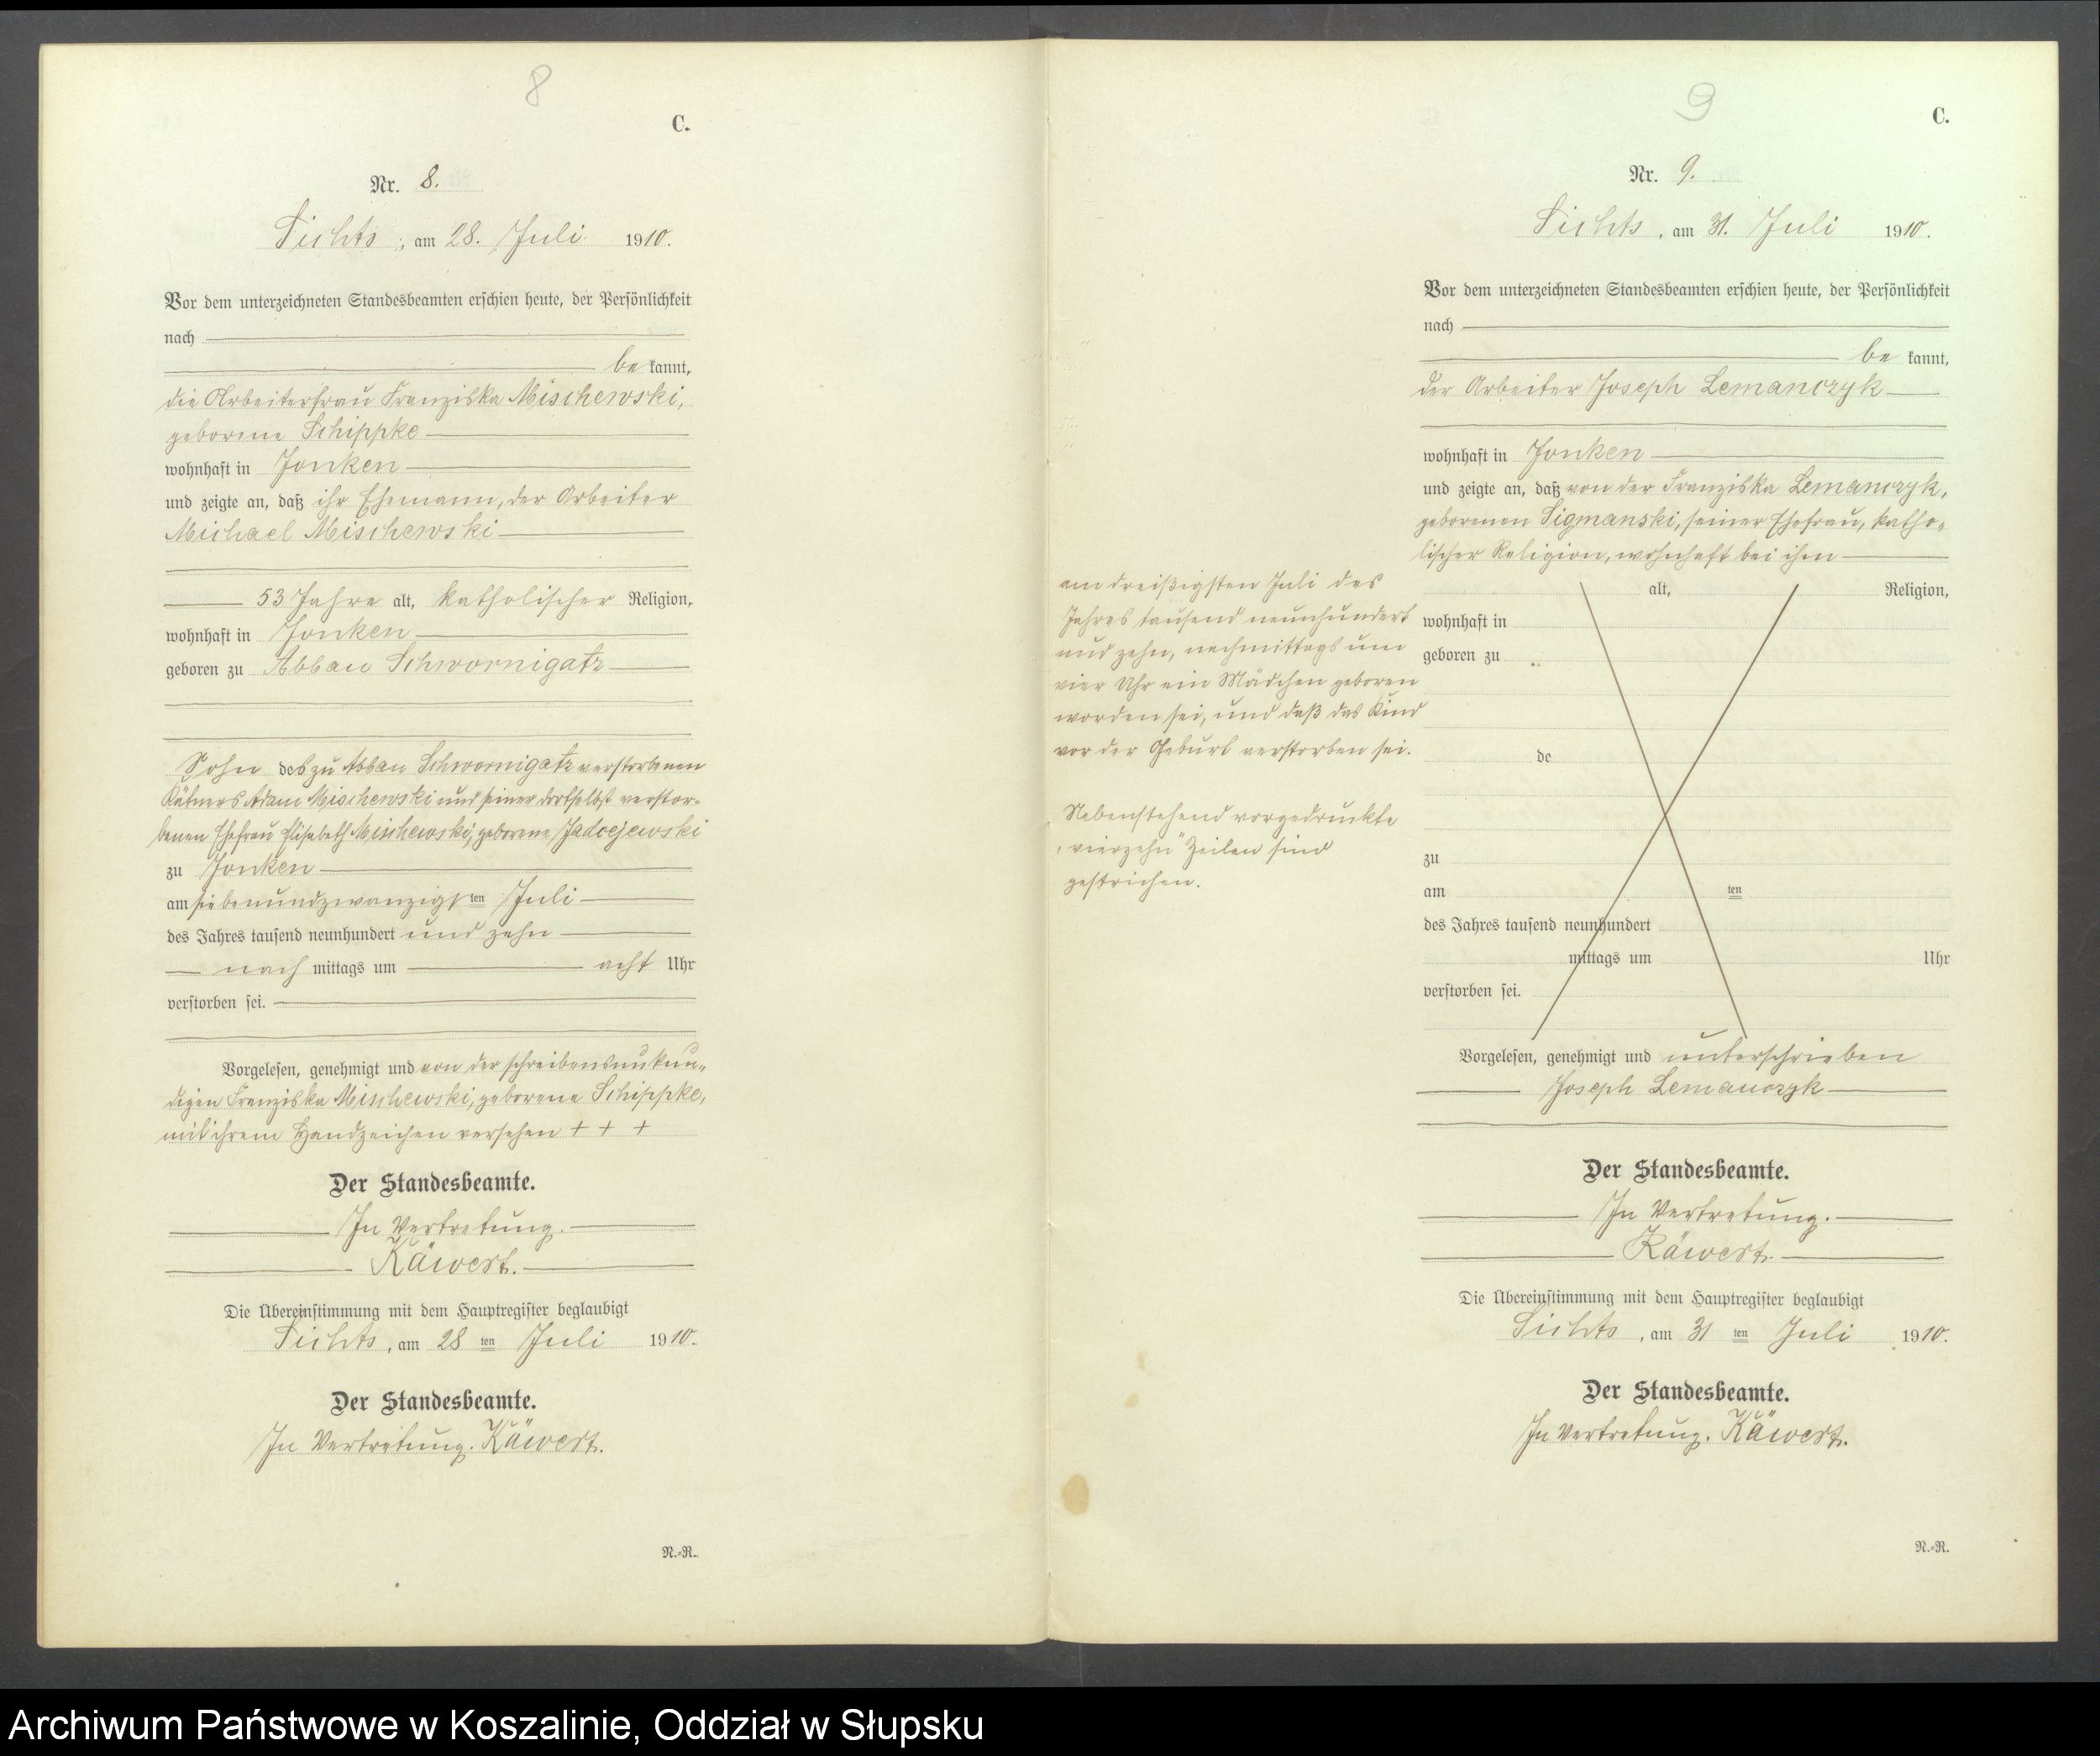 8
C.
Nr. 8.
Sichts, am 28. Juli 1910.
Vor dem unterzeichneten Standesbeamten erschien heute, der Persönlichkeit
nach
be kannt,
die Arbeiterfrau Franziska Mischewski,
geborene Schippke
wohnhaft in Jonken
und zeigte an, daß ihr Ehemann, der Arbeiter
Michael Mischewski
53 Jahre alt, katholischer Religion,
wohnhaft in Jonken
geboren zu Abbau Schwornigatz
Sohn des zu Abbau Schwornigatz verstorbenen
Kätners Adam Mischewski und seiner dortselbst verstor-
benen Ehefrau Elisabeth Mischewski, geborene
zu Jonken
am siebenundzwanzigsten Juli
des Jahres tausend neunhundert und zehn
nach mittags um acht Uhr
verstorben sei.
Vorgelesen, genehmigt und von der schreibensunkun-
digen Franziska Mischewski, geborene Schippke,
mit ihrem Handzeichen versehen + + +
Der Standesbeamte.
In Vertretung.
Käwert.
Die Übereinstimmung mit dem Hauptregister beglaubigt
Sichts, am 28 ten Juli 1910.
Der Standesbeamte.
In Vertretung. Käwert.
N.-R.
9
C.
Nr. 9.
Sichts, am 31. Juli 1910.
Vor dem unterzeichneten Standesbeamten erschien heute, der Persönlichkeit
nach
be kannt,
der Arbeiter Joseph Lemanczyk
wohnhaft in Jonken
und zeigte an, daß von der Franziska Lemanczyk,
geborenen Sigmanski, seiner Ehefrau, katho-
lischer Religion, wohnhaft bei ihm
am dreißigsten Juli des
Jahres tausend neunhundert
und zehn, nachmittags um
vier Uhr ein Mädchen geboren
worden sei, und daß das Kind
vor der Geburt verstorben sei.
Nebenstehend vorgedruckte
"vierzehn" Zeilen sind
gestrichen.
alt, Religion,
wohnhaft in
geboren zu
de
zu
am ten
des Jahres tausend neunhundert
mittags um Uhr
verstorben sei.
Vorgelesen, genehmigt und unterschrieben
Joseph Lemanczyk
Der Standesbeamte.
In Vertretung.
Käwert.
Die Übereinstimmung mit dem Hauptregister beglaubigt
Sichts, am 31 ten Juli 1910.
Der Standesbeamte.
In Vertretung. Käwert.
N.-R.
Archiwum Państwowe w Koszalinie, Oddział w Słupsku